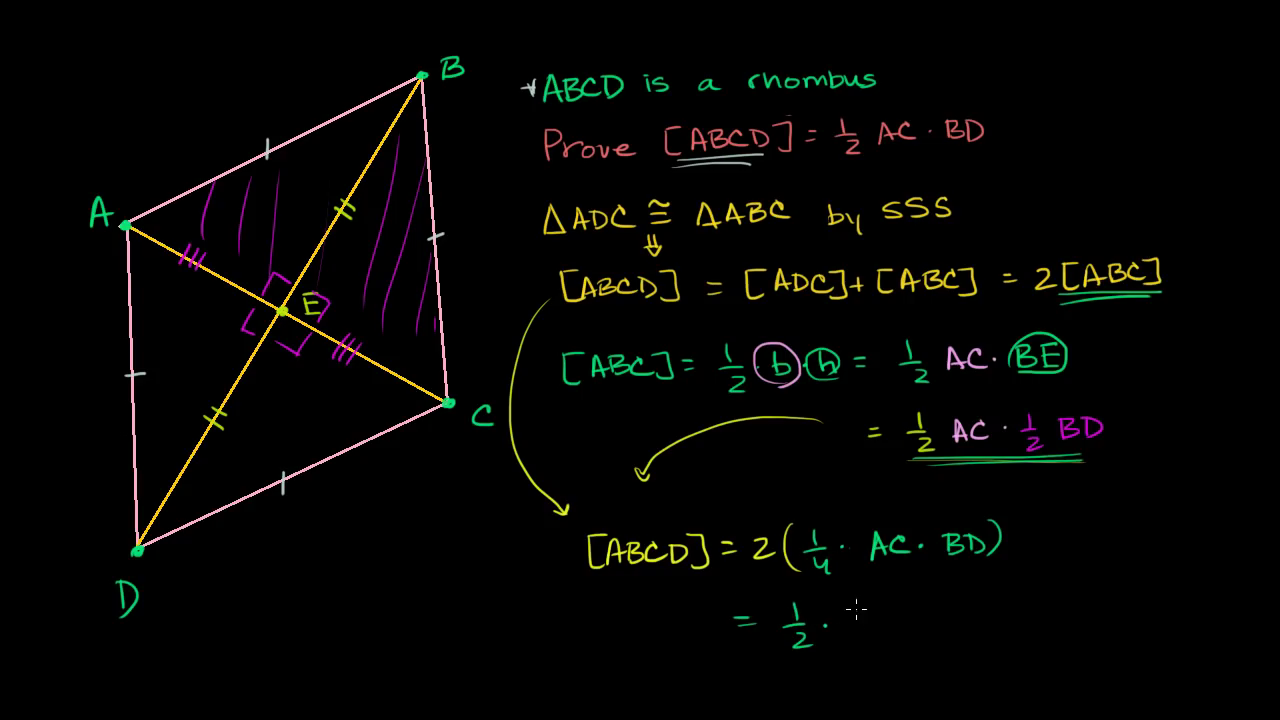 B
A
E
C
D
*ABCD is a rhombus
Prove [ABCD] = 1/2 AC · BD
△ADC ≅ △ABC by SSS
⇓
[ABCD] = [ADC] + [ABC] = 2[ABC]
[ABC] = 1/2 · b · h = 1/2 AC · BE
= 1/2 AC · 1/2 BD
[ABCD] = 2(1/4 · AC · BD)
= 1/2 ·